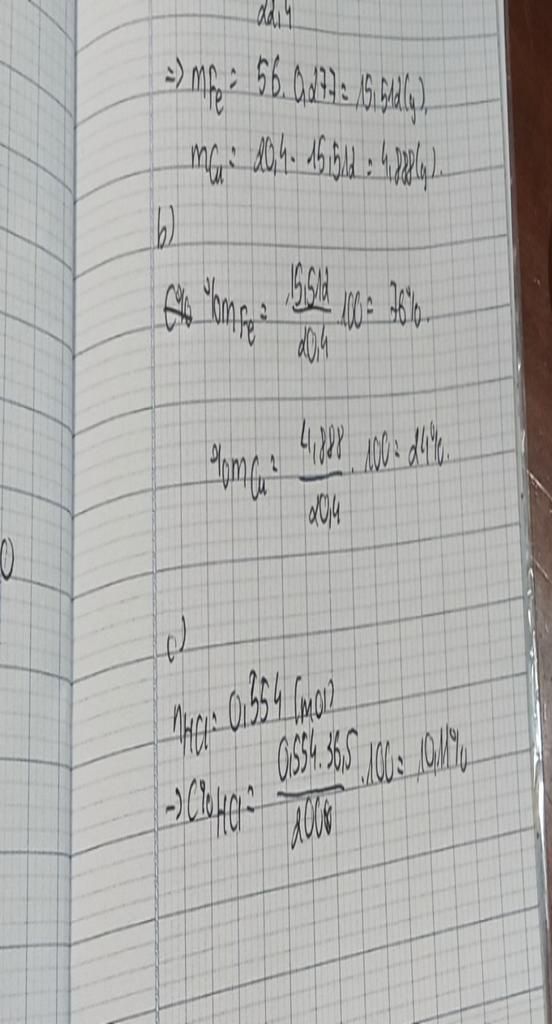 22,4
=> mFe = 56. 0,277 = 15,512(g).
mCu = 20,4 - 15,512 = 4,888(g).
b)
%mFe = 15,512/20,4 .100 = 76%.
%mCu = 4,888/20,4 . 100 = 24%.
c)
nHCl = 0,554 (mol)
-> C%HCl = 0,554.36,5/200 .100 = 10,11%